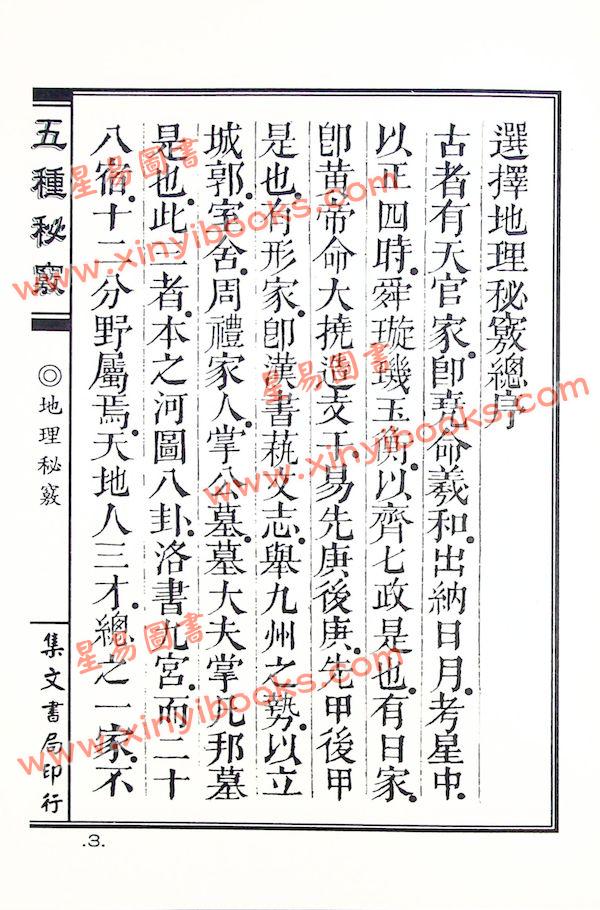 選擇地理秘竅總序
古者有天官家即堯命羲和出納日月考星中
以正四時舜璇璣玉衡以齊七政是也有日家
即黃帝命大撓造支干易先庚後庚先甲後甲
是也有形家即漢書蓺文志舉九州之勢以立
城郭室舍周禮家人掌公墓墓大夫掌凡邦墓
是也此二者本之河圖八卦洛書九宮而二十
八宿十二分野屬焉天地人三才總之一家不
五種秘竅
◎地理秘竅
集文書局印行
.3.
星易圖書
www.xinyibooks.com
星易圖書
www.xinyibooks.com
星易圖書
www.xinyibooks.com